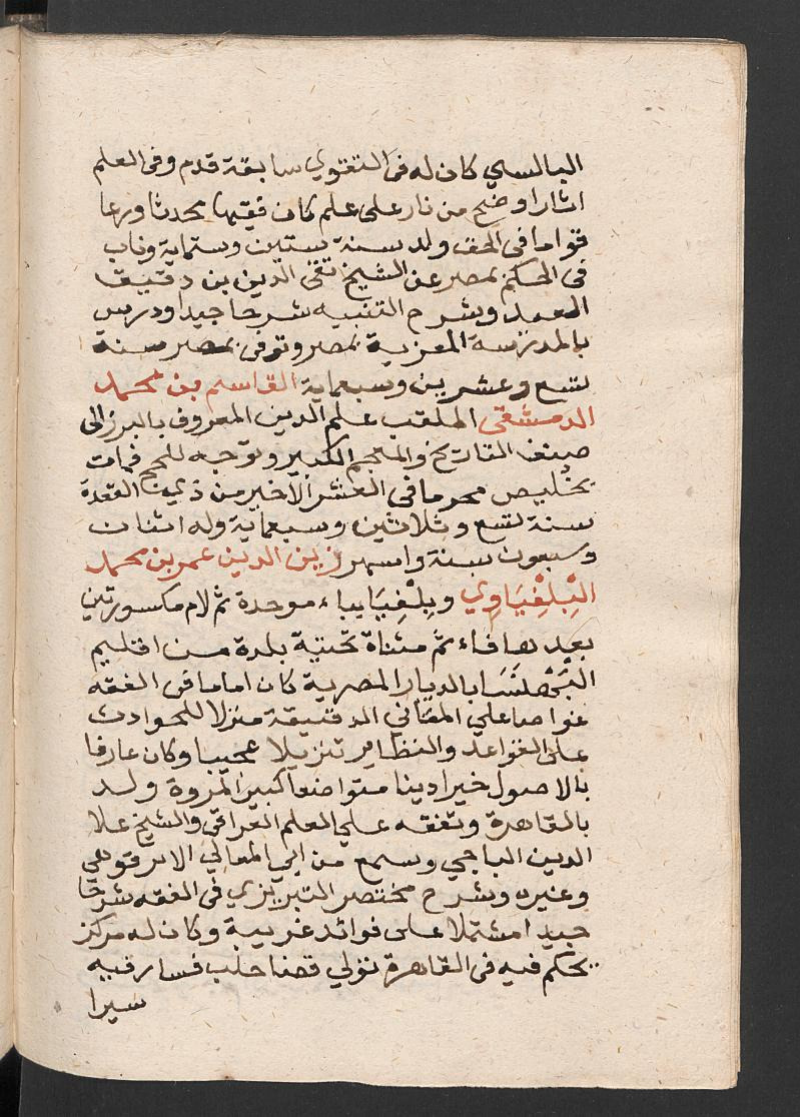 البالسي كان له في التقوي سابقة قدم وفى العلم
اثارا وضح من نار على علم كان فقيها محدثا ورعا
قواما فى الحق ولد سنة ستين وستماية وناب
فى الحكم بمصر عن الشيخ تقى الدين بن دقيق
العيد وشرح التنبيه شرحا جيدا ودرس
بالمدرسة المعزية بمصر وتوفى بمصر سنة
تسع وعشرين وسبعماية القاسم بن محمد
الدمشقى الملقب علم الدين المعروف بالبرزالى
صنف التاريخ والمعجم الكبير وتوجه للحج فمات
بخليص محرما فى العشر الاخير من ذي القعدة
سنة تسع وثلاثين وسبعماية وله اثنان
وسبعون سنة واسهر زين الدين عمر بن محمد
البِلِفْيَاوِي وبِلِفْيَا بباء موحدة ثم لام مكسورتين
بعدها فاء ثم مثناة تحتية بلدة من اقليم
البَهْنَسَا بالديار المصرية كان اماما فى الفقه
غواصا علي المعاني الدقيقة منزلا للحوادث
على القواعد والنظاير تنزيلا عجيبا وكان عارفا
بالاصول خيرا دينا متواضعا كبير المروة ولد
بالقاهرة وتفقه علي العلم العراقى والشيخ علا
الدين الباجي وسمع من ابي المعالي الابرقوهي
وغيره وشرح مختصر التبريزي فى الفقه شرحا
جيدا مشتملا على فوائد غريبة وكان له مركز
يحكم فيه فى القاهرة تولي قضا حلب فسار فيه
سيرا